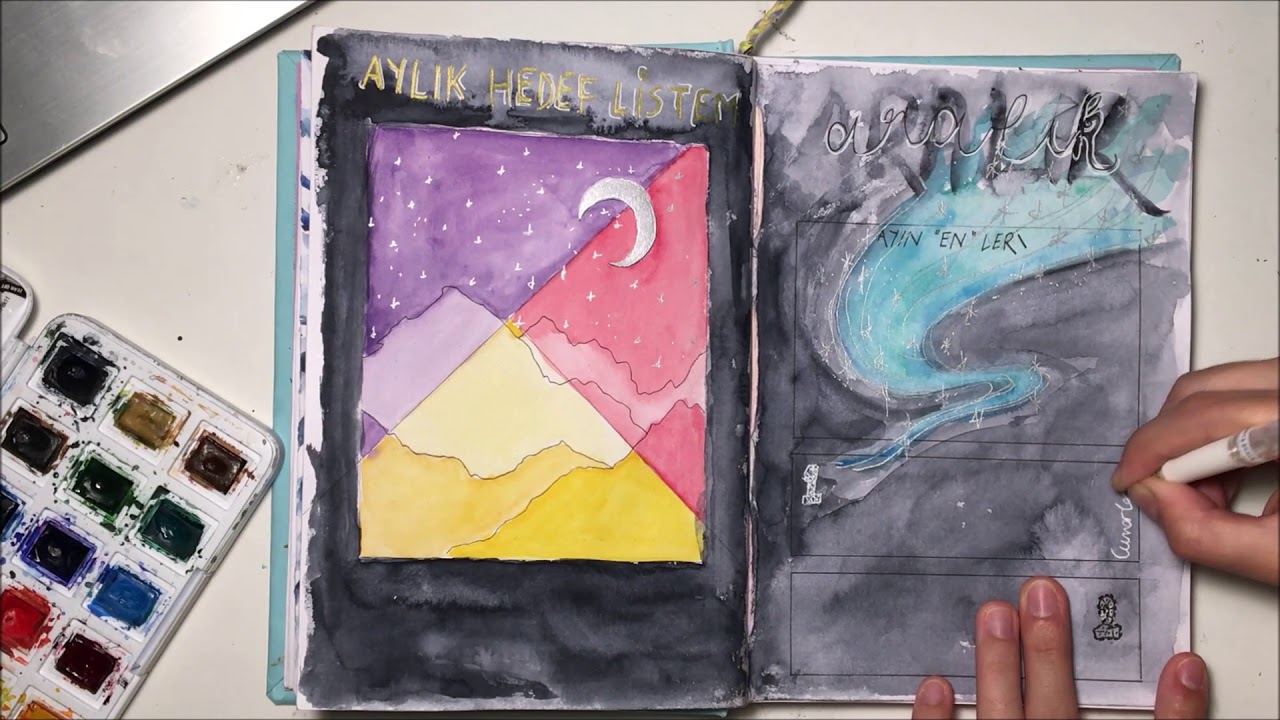 AYLIK HEDEF LİSTEM
aralık
AYIN "EN" LERİ